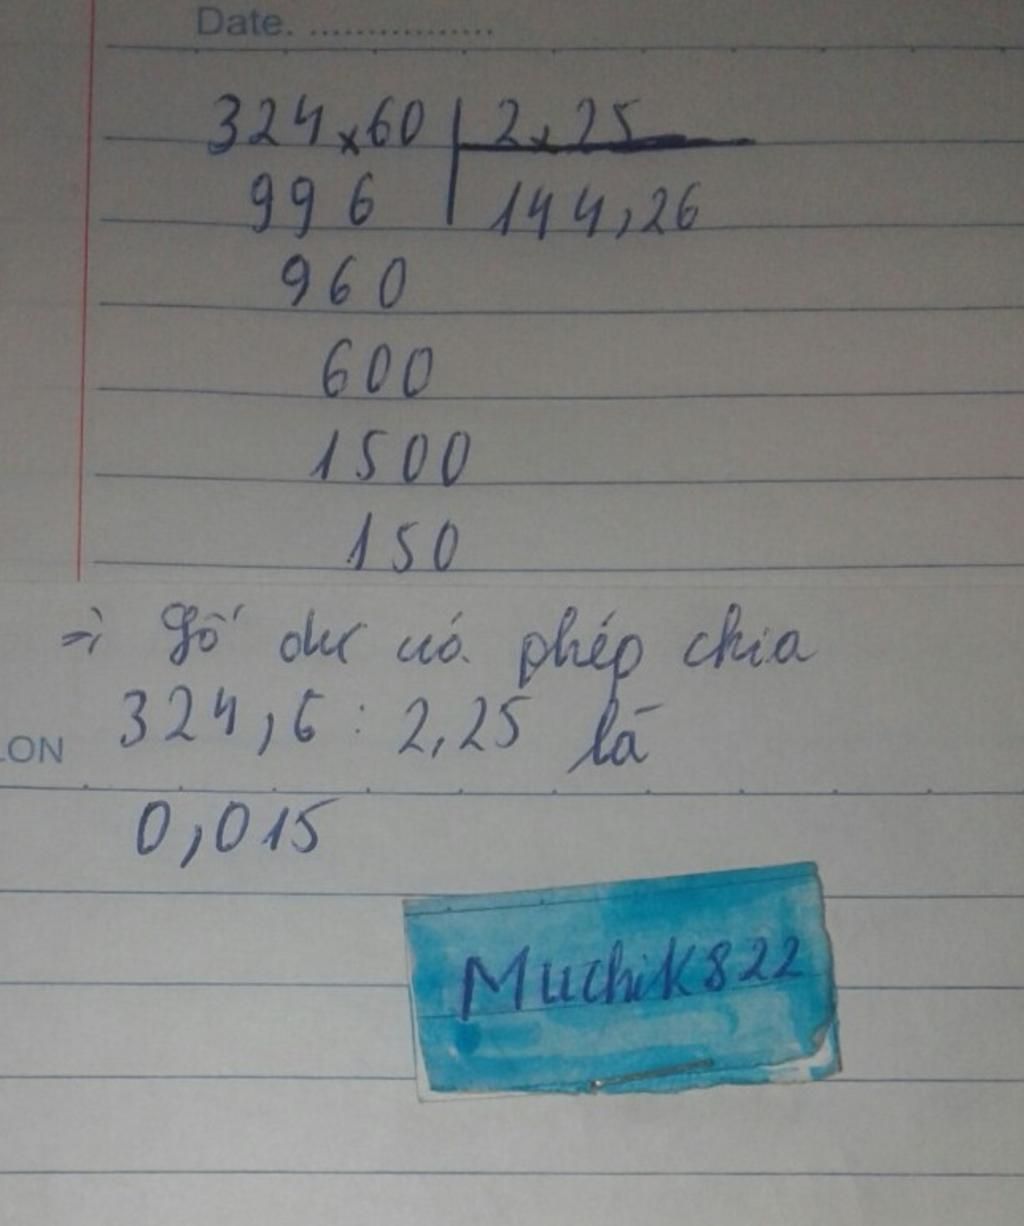 Date. ................
324×60 | 2×25
996 144,26
960
600
1500
150
=> Số dư của phép chia
324,6 : 2,25 là
LON
0,015
Muchik822